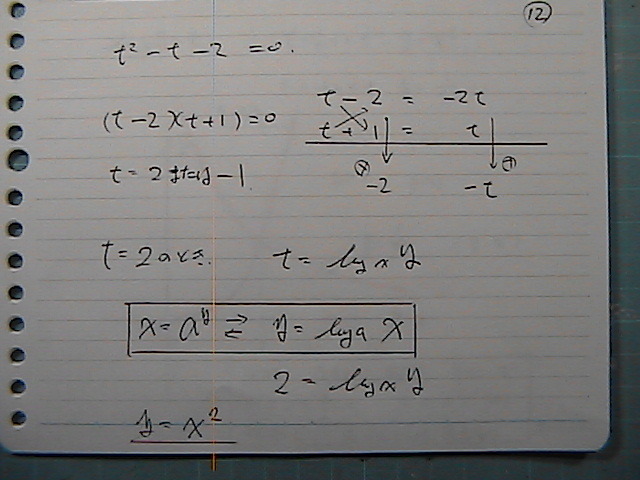 ⑫
t² - t - 2 = 0.
(t-2)(t+1)=0
t - 2 = -2t
t + 1 = t
⊗ -2 ⊕ -t
t = 2 または -1
t = 2のとき. t = log x y
x = a^y ⇄ y = log a x
2 = log x y
y = x²